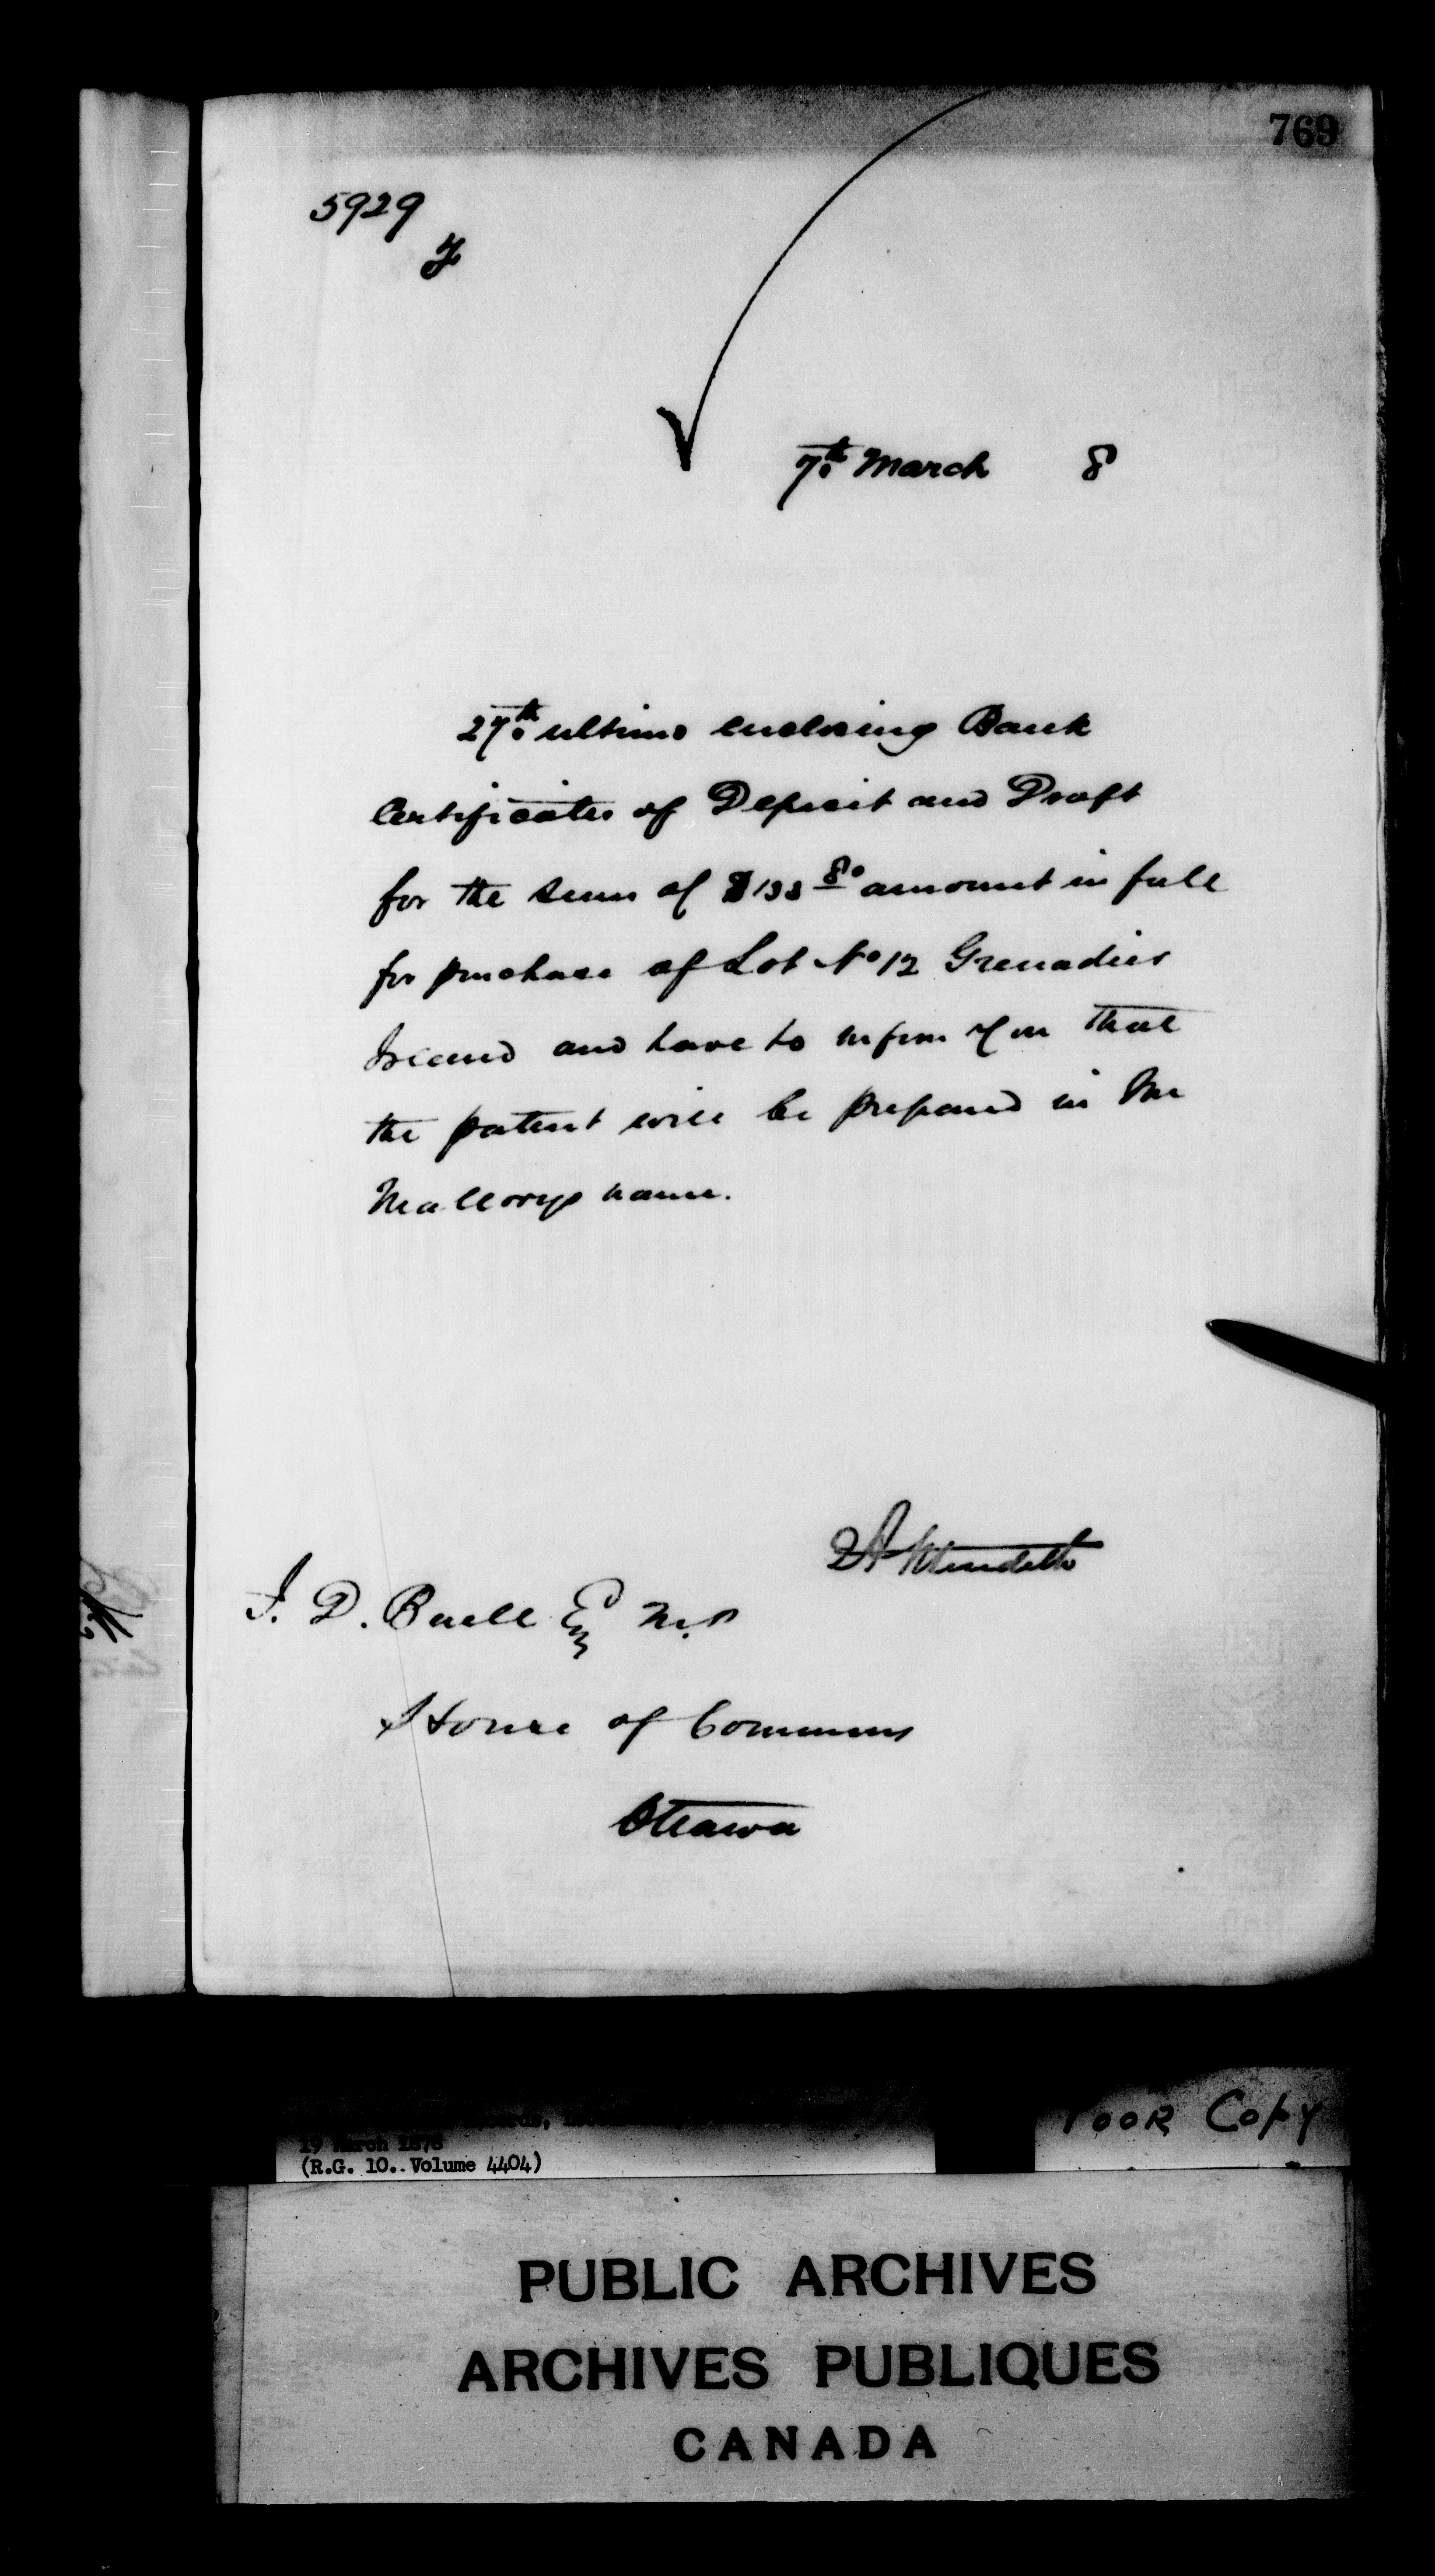 769
5929
7th March 8
27th ultimo enclosing Bank
Certificates of Deposit and Draft
for the sum of $133 80 amount in full
for purchase of Lot No 12 Grenadier
Island and have to inform you that
the patent will be prepared in Mr
Mallorys name.
J. D. Buell Esq M.P
House of Commons
Ottawa
19 March 1878
(R.G. 10.. Volume 4404)
Poor Copy
PUBLIC ARCHIVES
ARCHIVES PUBLIQUES
CANADA